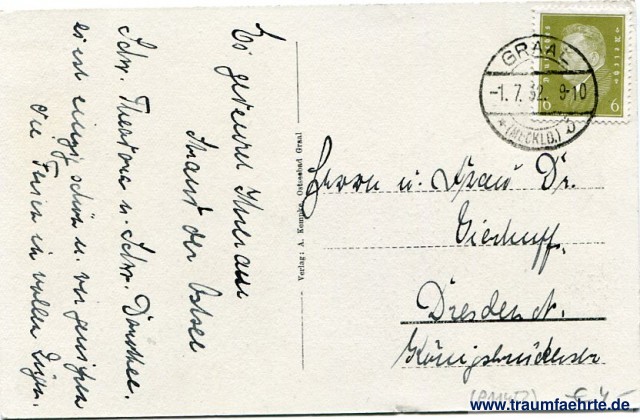 GRAAL
-1.7.32. 9-10
(MECKLB.)
6 6
Herrn u. Frau Dr.
Vierhuff.
Dresden N.
Königsbrückerstr
Verlag: A. Kempke, Ostseebad Graal
Es am
Strand der Ostsee
Schw. Theodora u. Schw. Dorothee.
es ist einzig schön u. wir geniessen
die Ferien in vollen Zügen.
€ 4,-
www.traumfaehrte.de